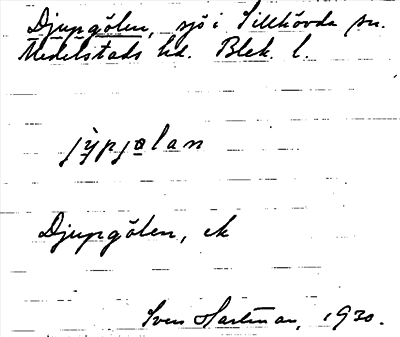 Djupgölen, sjö i Sillhövda sn.
Medelstads hd. Blek. l.
Djupgölen, ek
Sven Hartman, 1930.